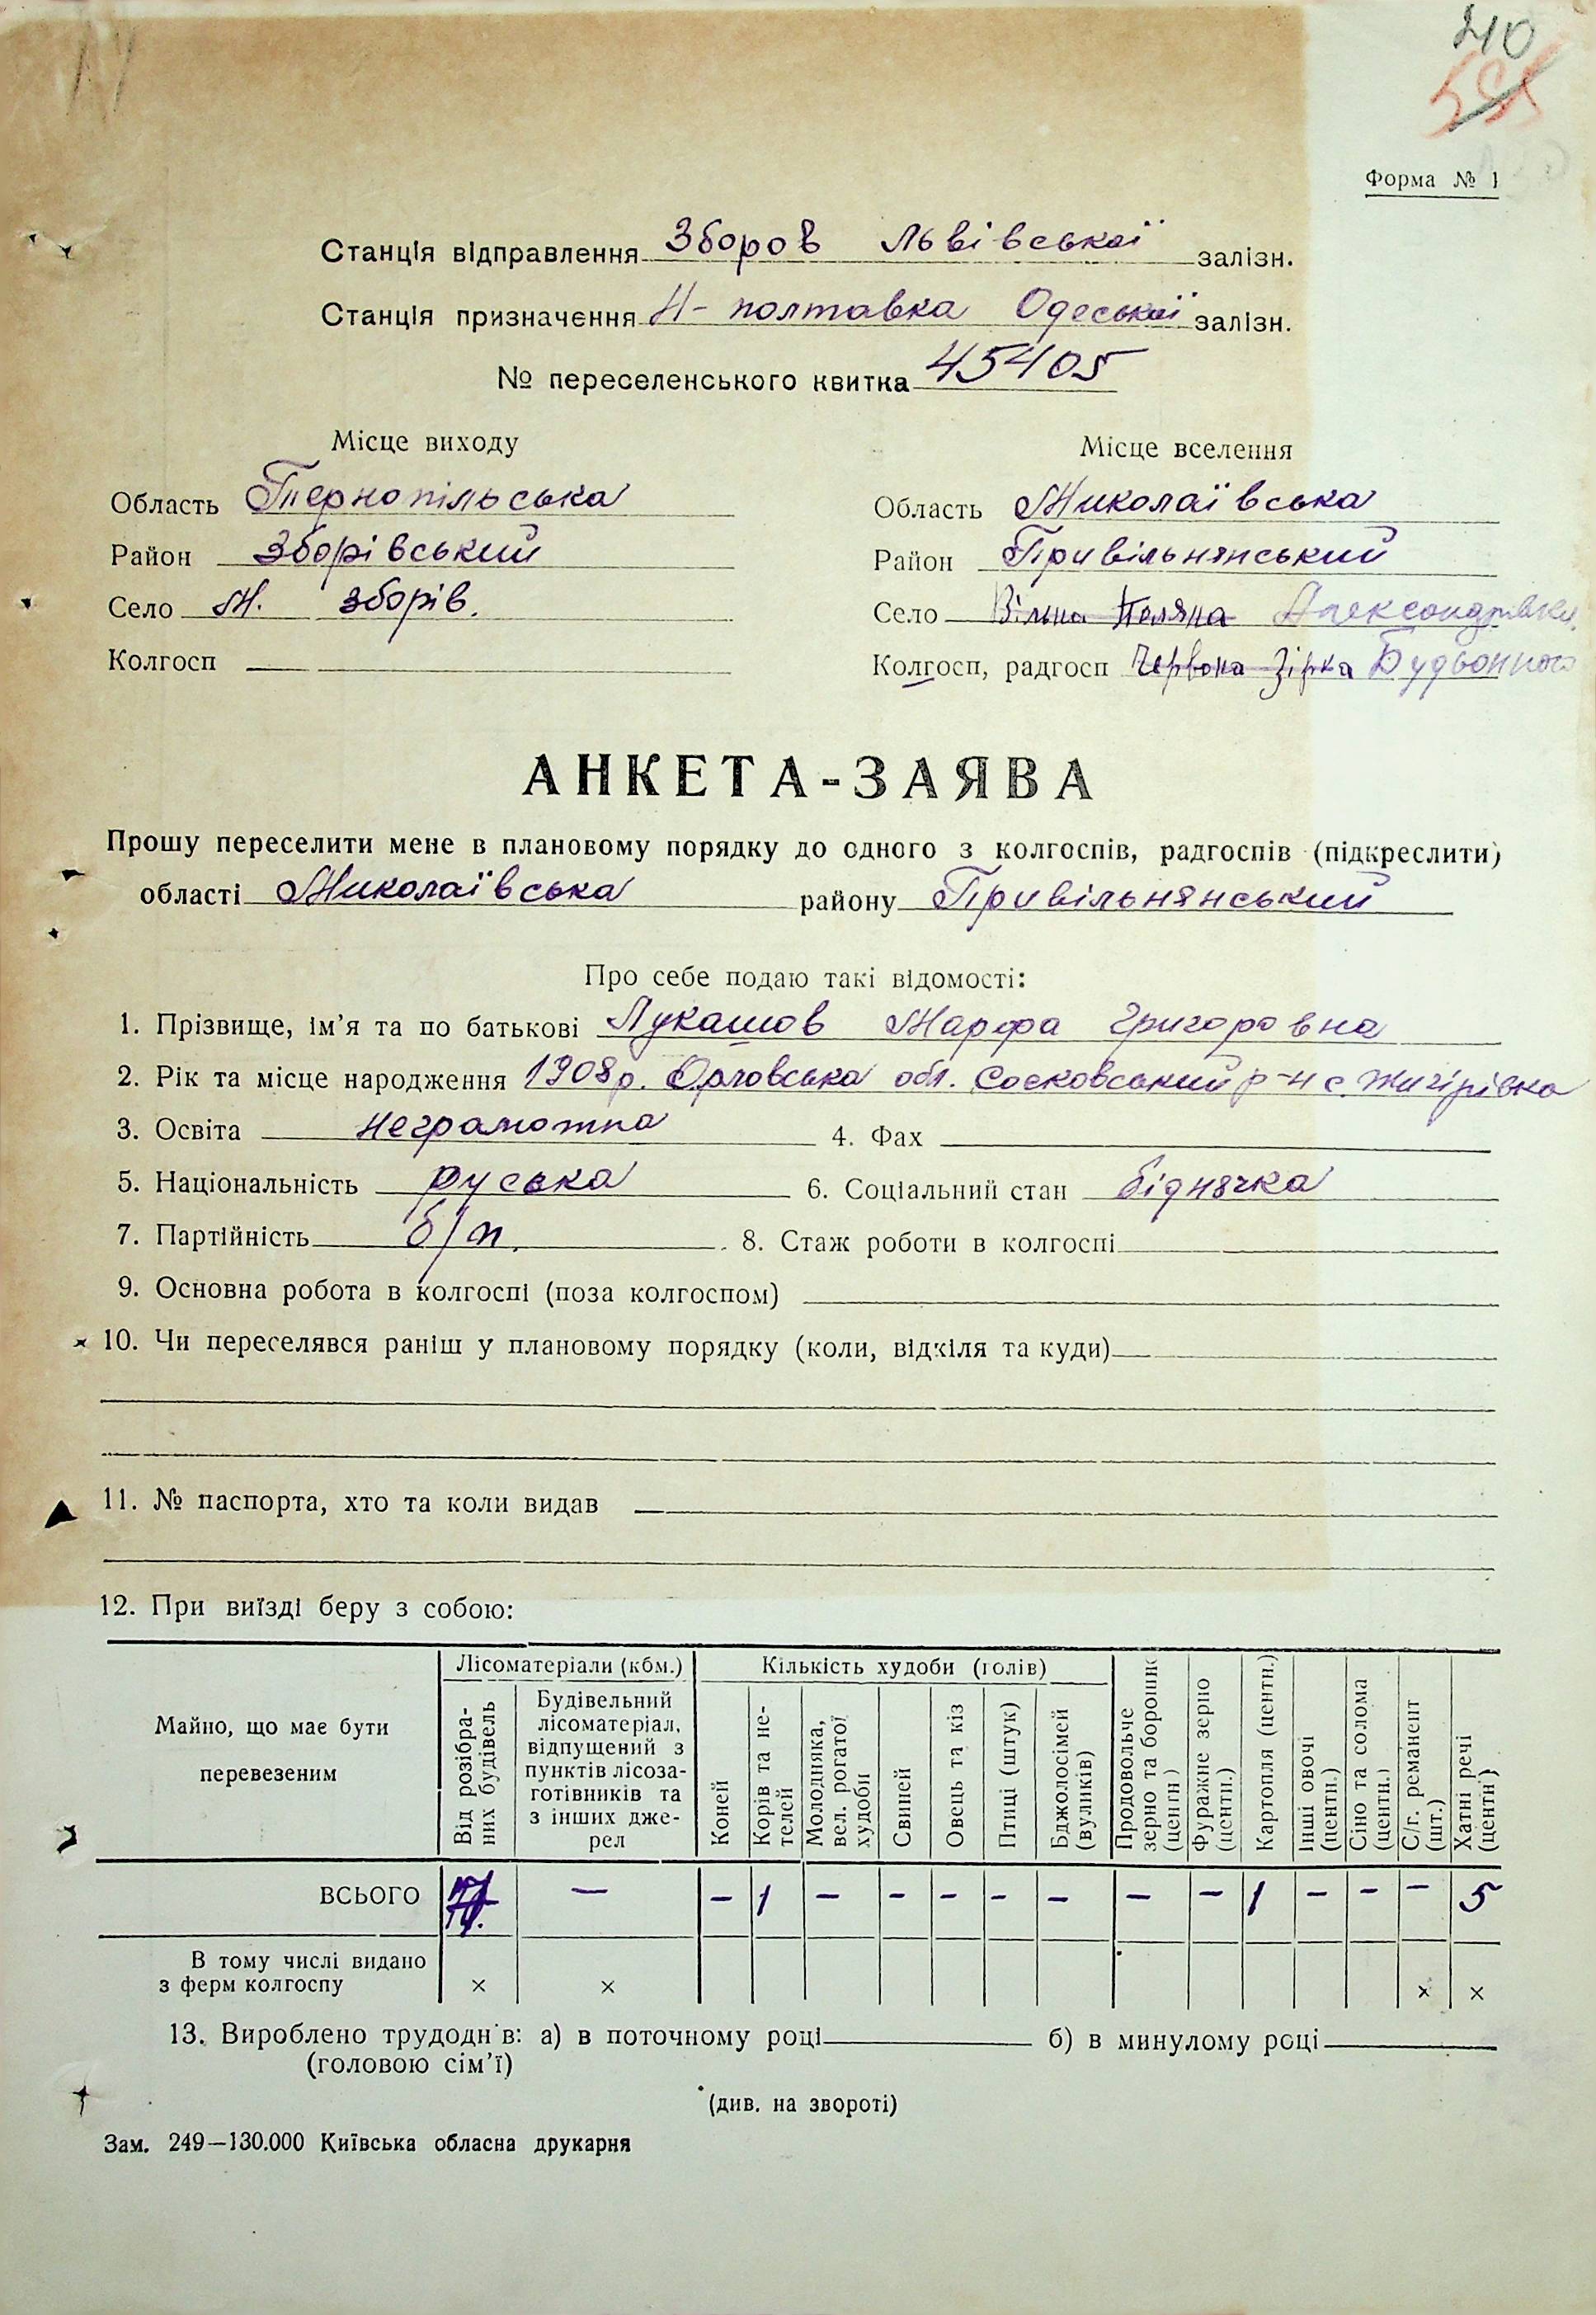 210
Форма № 1
Станція відправлення Зборов Львівської залізн.
Станція призначення Н-полтавка Одеської залізн.
№ переселенського квитка 45405
Місце виходу
Місце вселення
Область Тернопільська
Область Миколаївська
Район Зборівський
Район Привільнянський
Село М. Зборів.
Село Вільна Поляна Александрівка
Колгосп
Колгосп, радгосп Червона Зірка Будьонного
АНКЕТА-ЗАЯВА
Прошу переселити мене в плановому порядку до одного з колгоспів, радгоспів (підкреслити)
області Миколаївська району Привільнянський
Про себе подаю такі відомості:
1. Прізвище, ім'я та по батькові Лукашов Марфа Григоровна
2. Рік та місце народження 1908 р. Орловська обл. Сосковський р-н с.
3. Освіта неграмотна 4. Фах
5. Національність руська 6. Соціальний стан біднячка
7. Партійність б/п. 8. Стаж роботи в колгоспі
9. Основна робота в колгоспі (поза колгоспом)
10. Чи переселявся раніш у плановому порядку (коли, відкіля та куди)
11. № паспорта, хто та коли видав
12. При виїзді беру з собою:
Майно, що має бути перевезеним
Лісоматеріали (кбм.)
Від розібраних будівель
Будівельний лісоматеріал, відпущений з пунктів лісозаготівників та з інших джерел
Кількість худоби (голів)
Коней
Корів та нетелей
Молодняка, вел. рогатої худоби
Свиней
Овець та кіз
Птиці (штук)
Бджолосімей (вуликів)
Продовольче зерно та борошно (центн)
Фуражне зерно (центн.)
Картопля (центн.)
Інші овочі (центн.)
Сіно та солома (центн.)
С/г. реманент (шт.)
Хатні речі (центн)
ВСЬОГО — — 1 — — — — — — — 1 — — — 5
В тому числі видано з ферм колгоспу × × × ×
13. Вироблено трудоднів: а) в поточному році б) в минулому році
(головою сім'ї)
(див. на звороті)
Зам. 249—130.000 Київська обласна друкарня